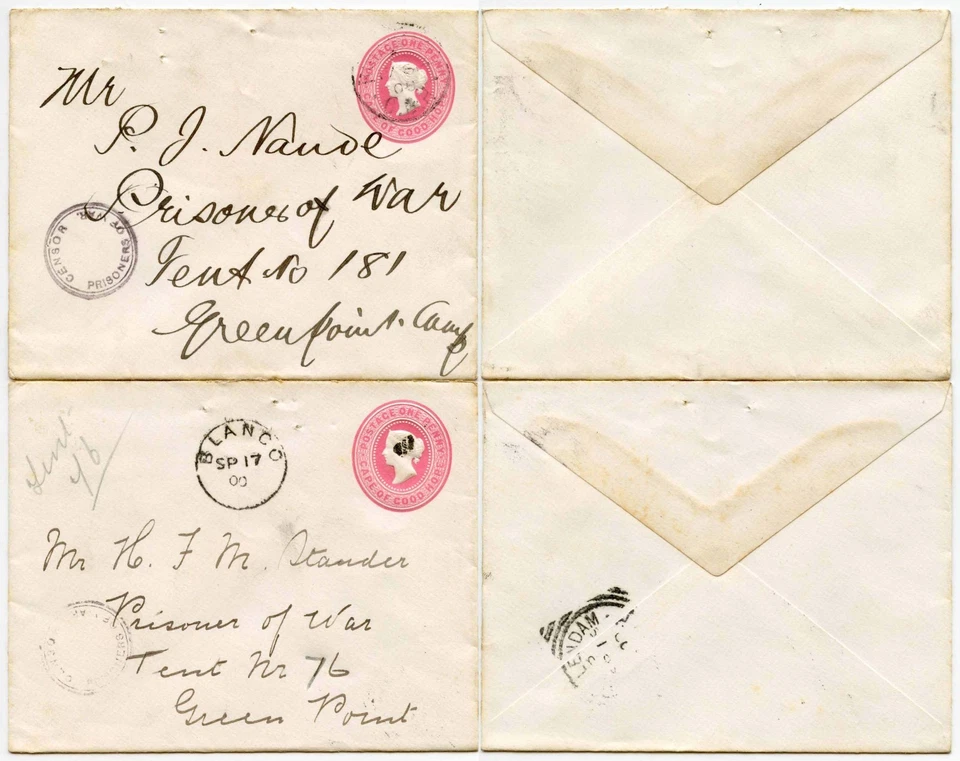 POSTAGE ONE PENNY
CAPE OF GOOD HOPE
Mr
P. J. Naude
Prisoner of War
Tent No 181
Green Point Camp
CENSOR
PRISONERS OF WAR
Tent
76
BLANCO
SP 17
00
POSTAGE ONE PENNY
CAPE OF GOOD HOPE
Mr H. F. M. Stander
Prisoner of War
Tent Nr 76
Green Point
LENDAM